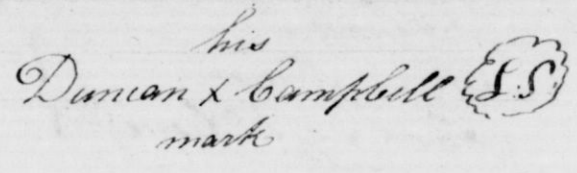 his
Duncan x Campbell L.S.
mark